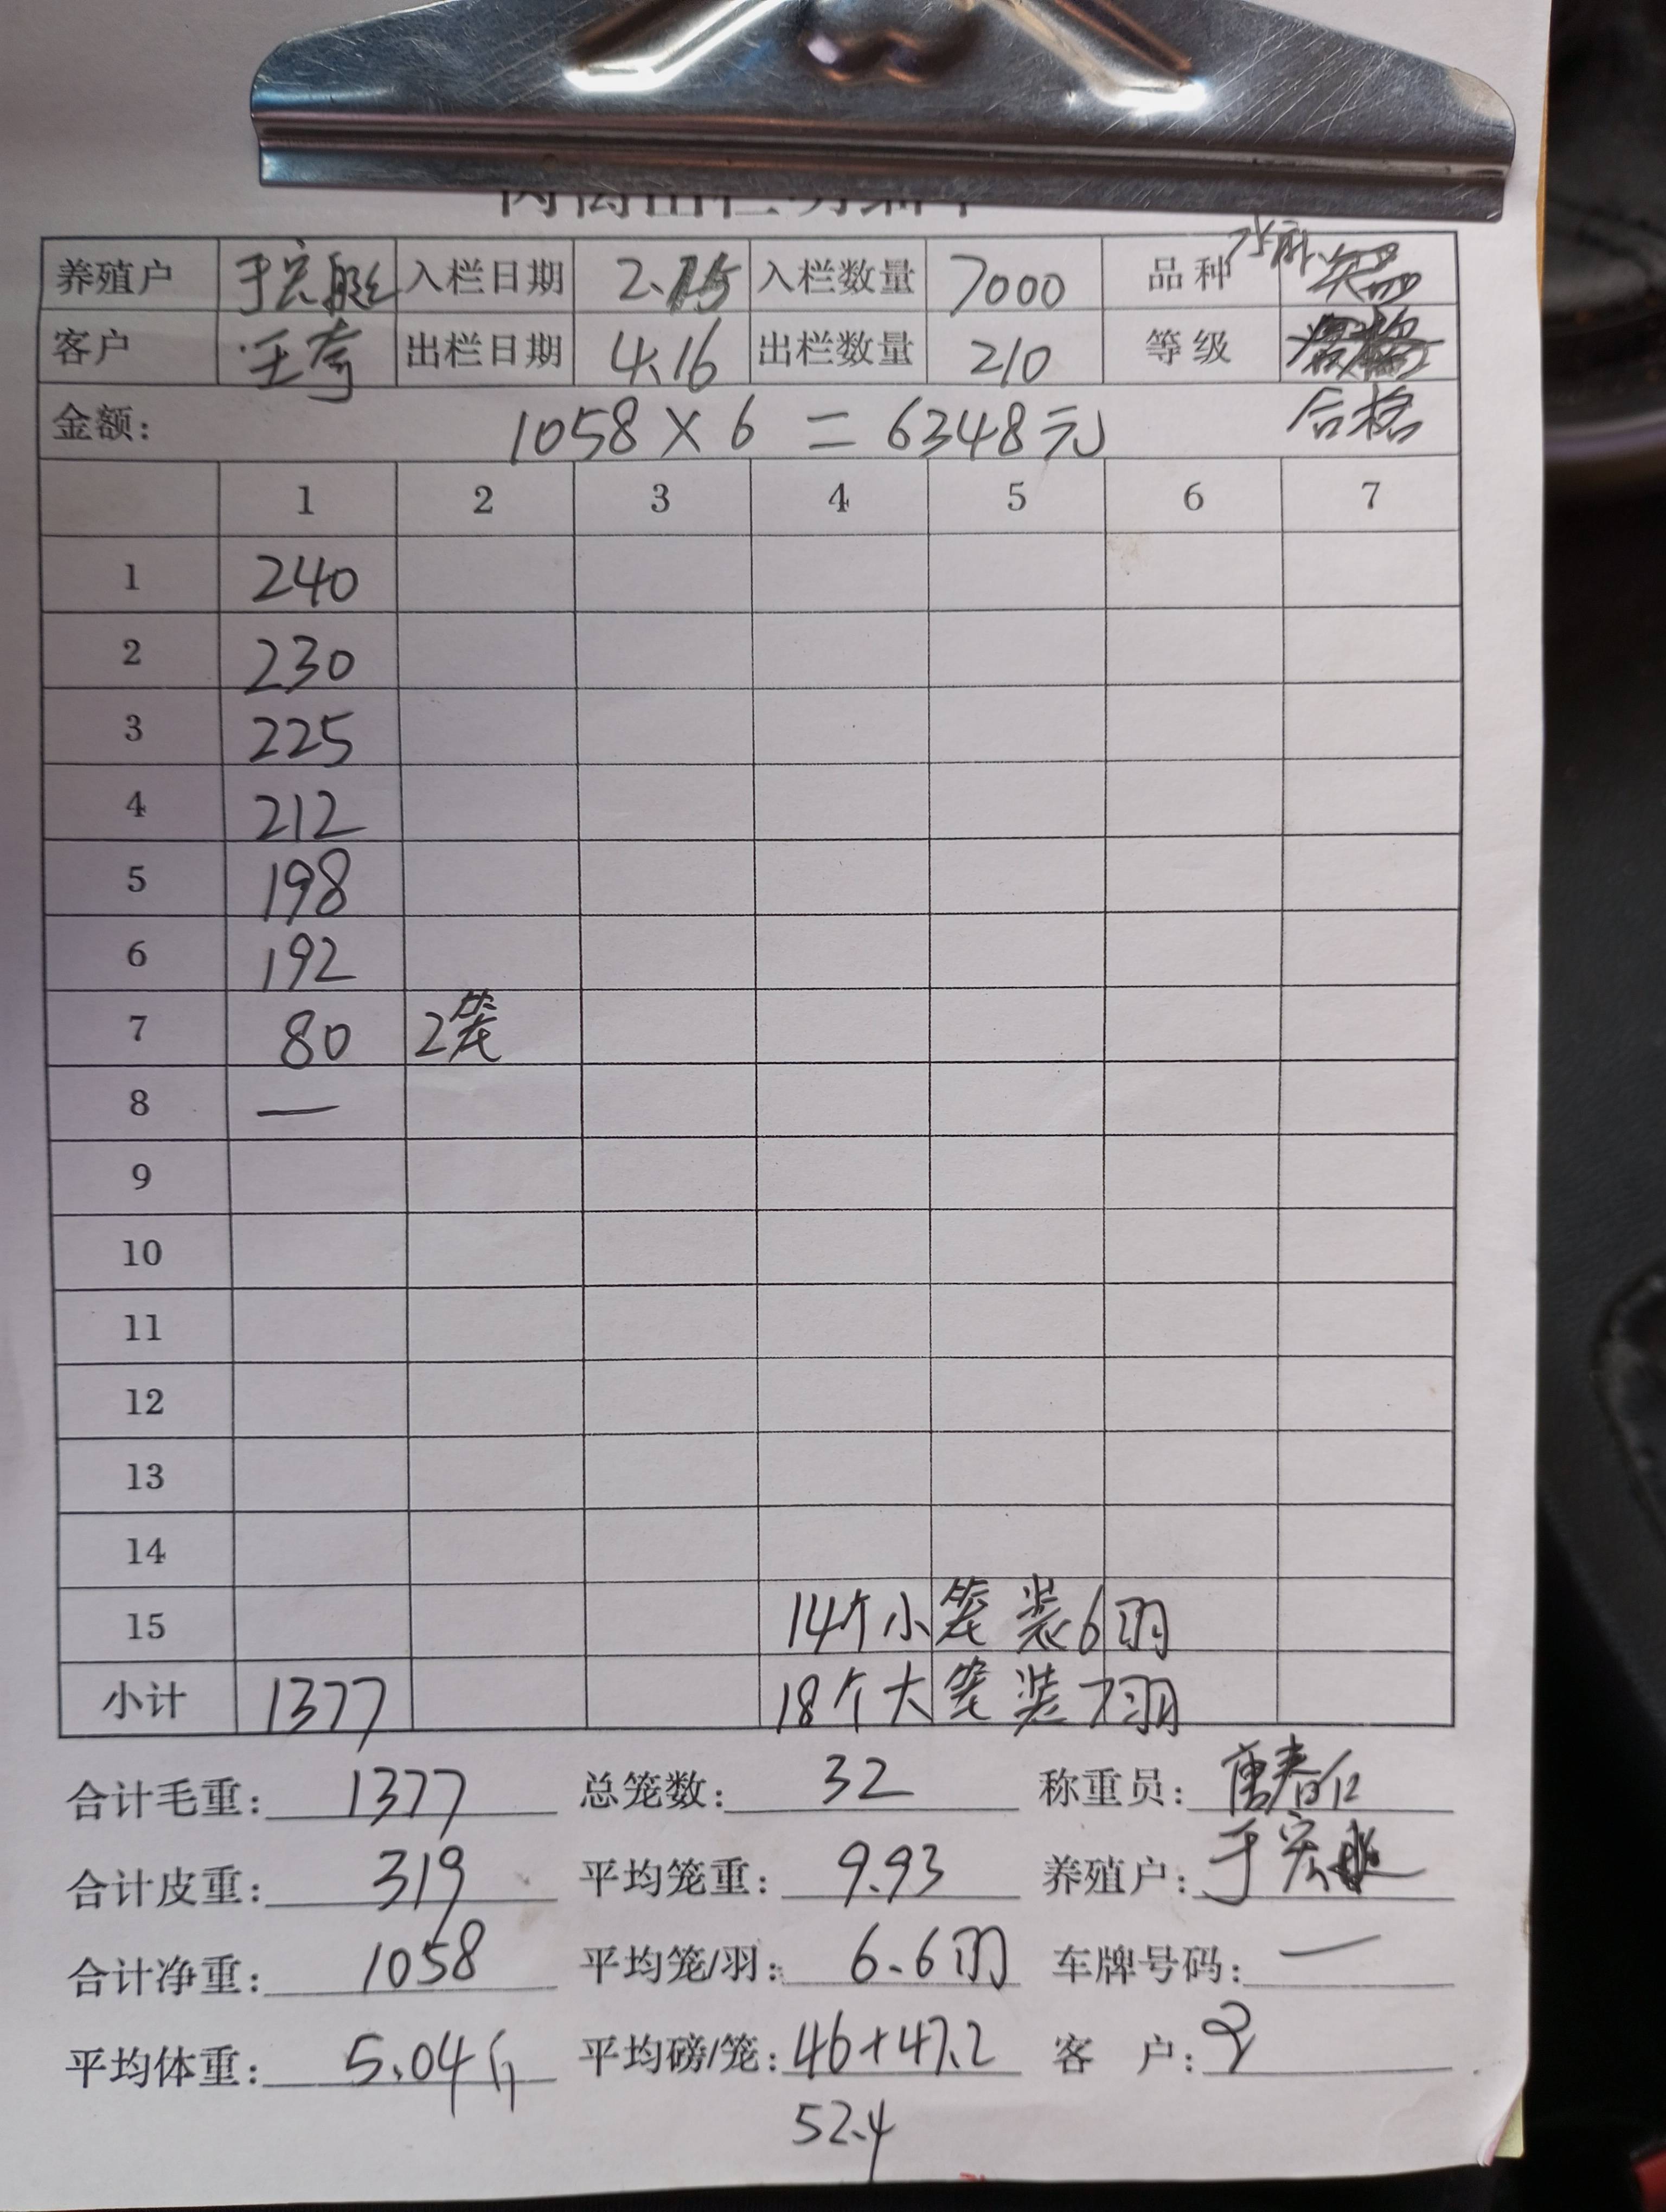 养殖户 于宏艇 入栏日期 2.15 入栏数量 7000 品种
客户 王奇 出栏日期 4.16 出栏数量 210 等级
金额: 1058 × 6 = 6348元 合格
1 2 3 4 5 6 7
1 240
2 230
3 225
4 212
5 198
6 192
7 80 2笼
8 —
9
10
11
12
13
14
15 14个小笼装6羽
小计 1377 18个大笼装7羽
合计毛重: 1377 总笼数: 32 称重员: 唐春仁
合计皮重: 319 平均笼重: 9.93 养殖户: 于宏艇
合计净重: 1058 平均笼/羽: 6.6羽 车牌号码: —
平均体重: 5.04斤 平均磅/笼: 46+47.2 客 户:
52.4